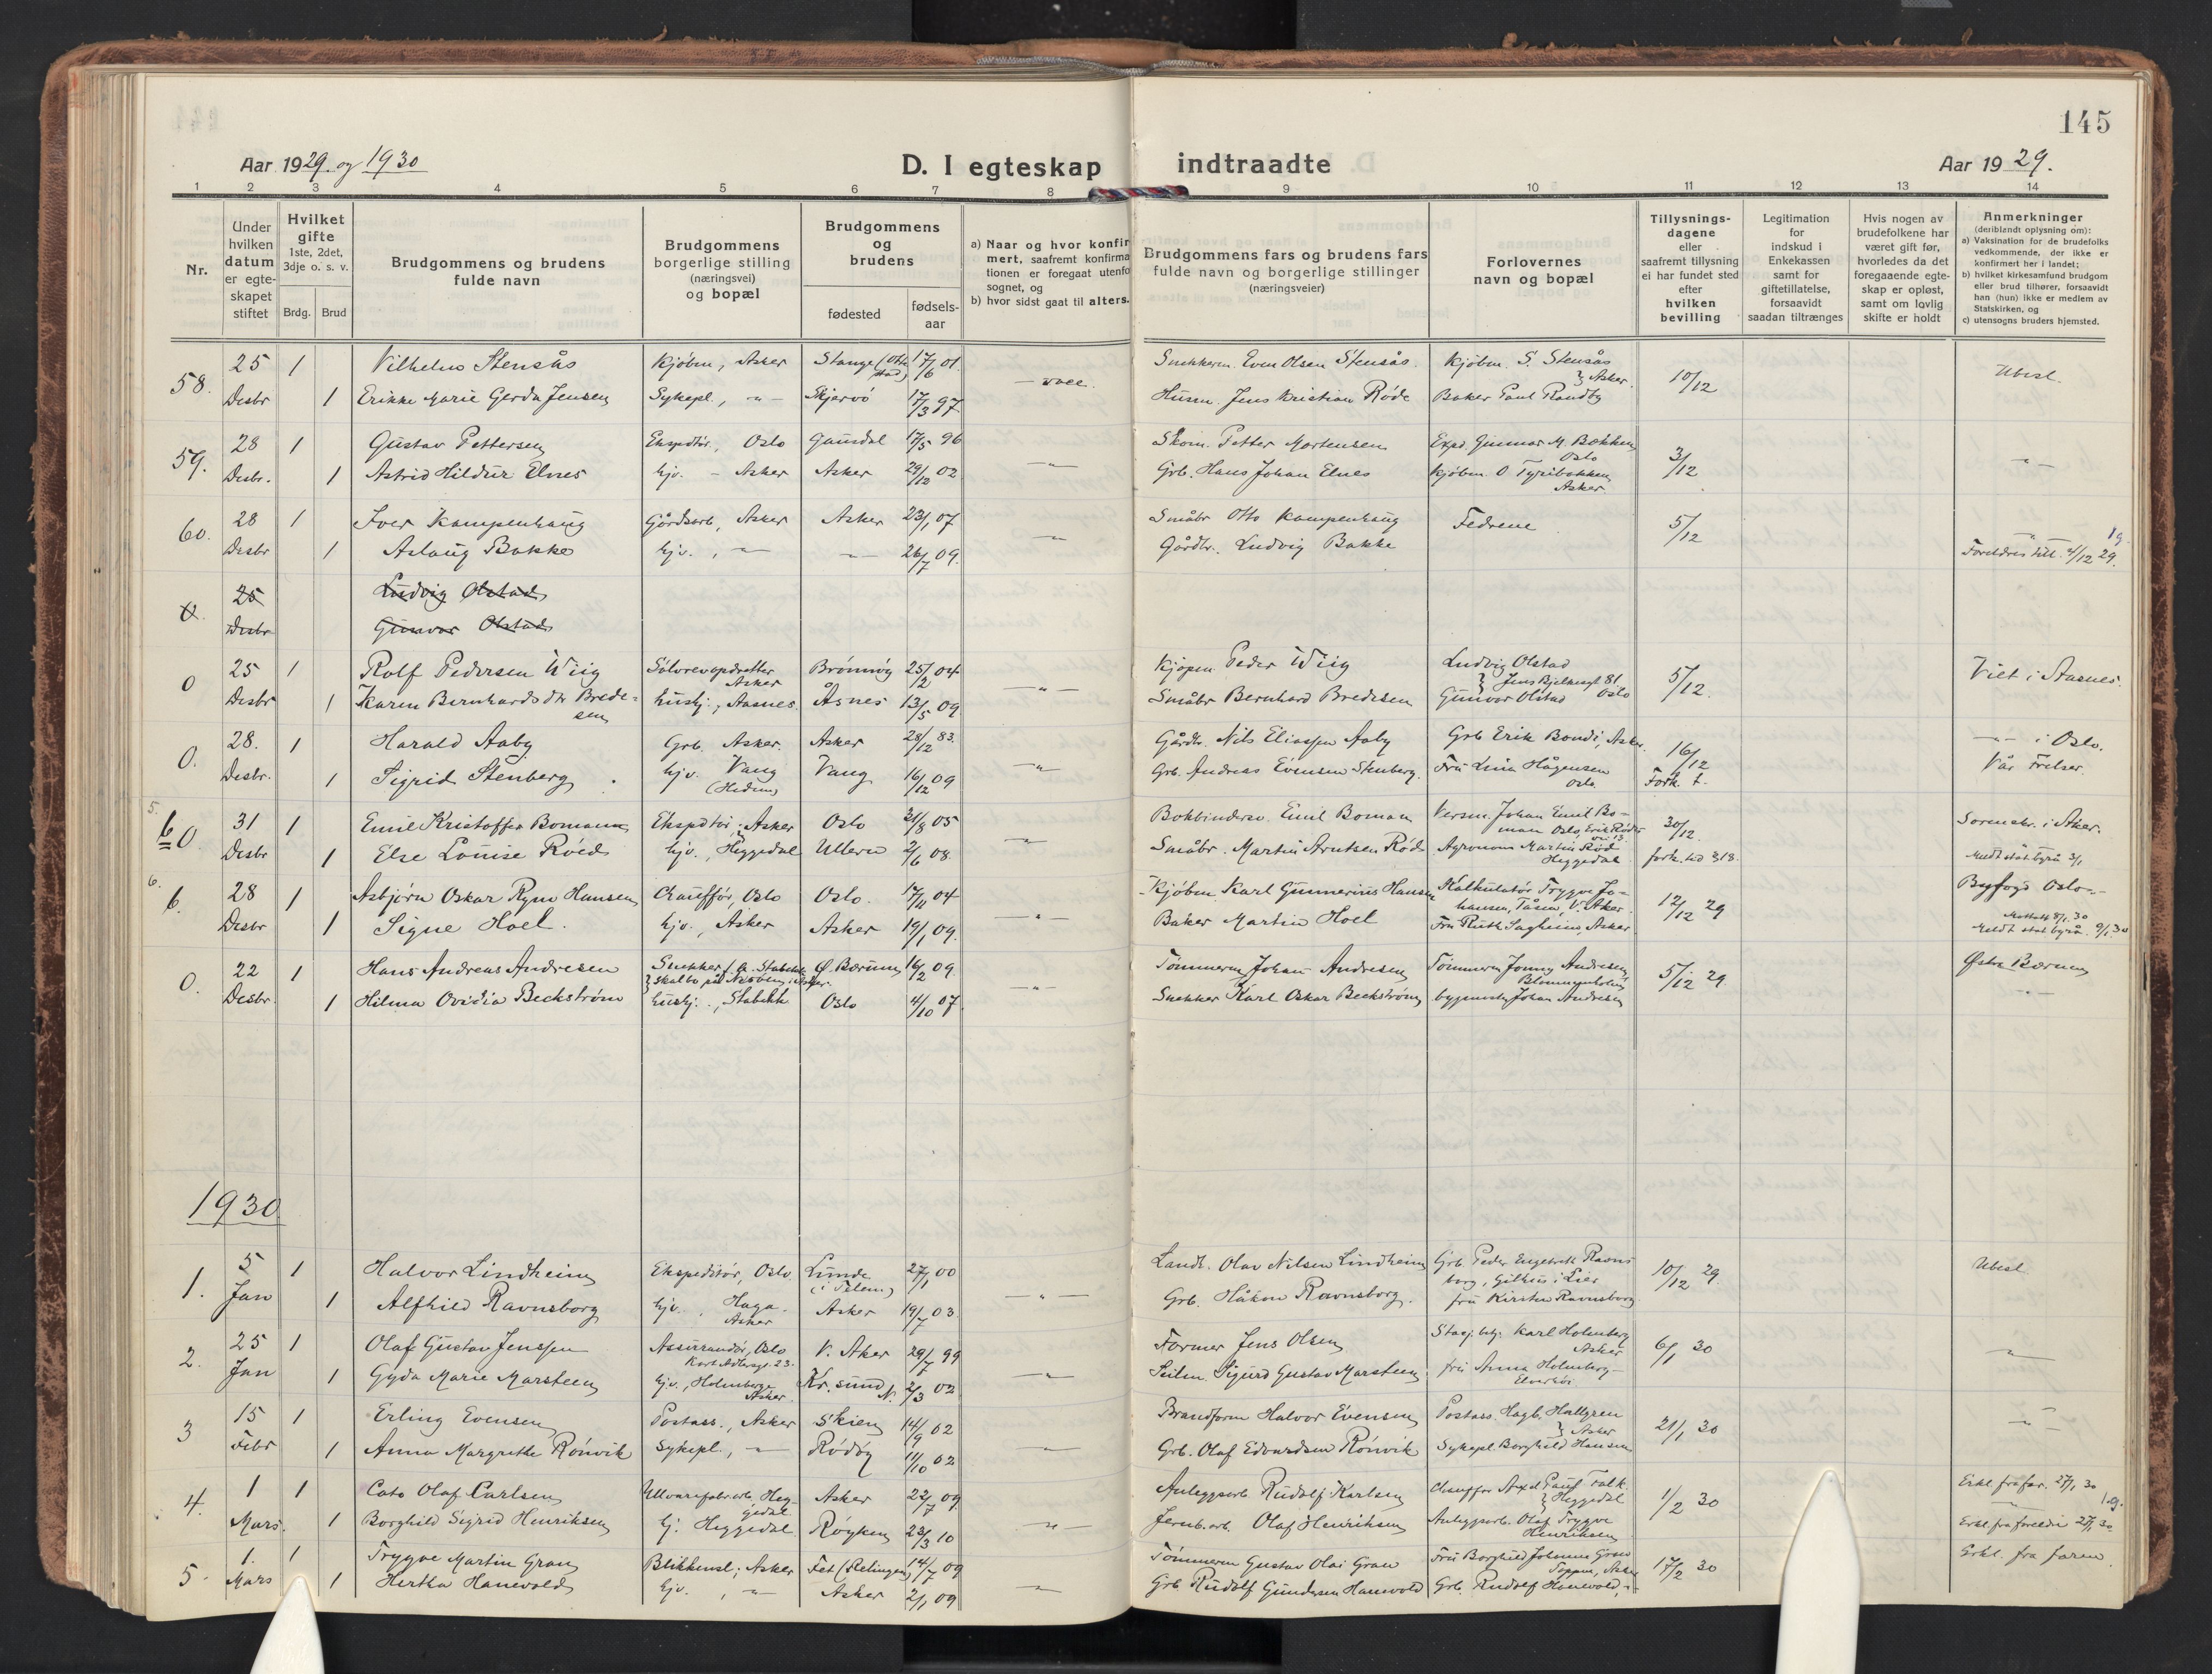 145
Aar 1929. og 1930
D. I egteskap indtraadte
Aar 1929.
1 2 3 4 5 6 7 8 9 10 11 12 13 14
Nr.
Under hvilken datum er egte-skapet stiftet
Hvilket gifte
1ste, 2det, 3dje o. s. v.
Brdg. Brud
Brudgommens og brudens fulde navn
Brudgommens borgerlige stilling (næringsvei) og bopæl
Brudgommens og brudens
fødested
fødsels-aar
a) Naar og hvor konfir
mert, saafremt konfirma
tionen er foregaat utenfo
sognet, og
b) hvor sidst gaat til alters.
Brudgommens fars og brudens fars
fulde navn og borgerlige stillinger
(næringsveier)
Forlovernes
navn og bopæl
Tillysnings-
dagene
eller
saafremt tillysning
ei har fundet sted
efter
hvilken
bevilling
Legitimation
for
indskud i
Enkekassen
samt for
giftetillatelse,
forsaavidt
saadan tiltrænges
Hvis nogen av
brudefolkene har
været gift før,
hvorledes da det
foregaaende egte-
skap er opløst,
samt om lovlig
skifte er holdt
Anmerkninger
(deriblandt oplysning om):
a) Vaksination for de brudefolks
vedkommende, der ikke er
konfirmert her i landet;
b) hvilket kirkesamfund brudgom
eller brud tilhører, forsaavidt
han (hun) ikke er medlem av
Statskirken, og
c) utensogns bruders hjemsted.
58. 25 1 Vilhelm Stensås Kjøbm, Asker Stange 17/6 01 Snekkerm. Even Olsen Stensås. Kjøbm. S. Stensås } Asker. 10/12 Ubesl.
Desbr 1 Erikke Marie Gerda Jensen Sykepl., -"- Skjervö 17/3 97 Husm. Jens Kristian Röde Baker Paul Randby
59. 28 1 Gustav Pettersen Ekspeditör, Oslo Gausdal 17/5 96 Skom. Petter Mortensen Exped. Gunnar M. Bækken Oslo 3/12 -"-
Desbr. 1 Astrid Hildur Elnes hjv. - Asker Asker 29/12 02 -"- Grb. Hans Johan Elnes Kjøbm. O Tyribakken Asker.
60. 28 1 Iver Kampenhaug Gårdsarb, Asker Asker 23/1 07 Småbr Otto Kampenhaug Fedrene 5/12 -"-
Desbr 1 Aslaug Bakke hjv., -"- -"- 26/7 09. -"- Gårdbr. Ludvig Bakke Foreldres till. 4/12 29.
0. 25 Ludvig Olstad
Desbr Gunvor Olstad
0 25 1 Rolf Pedersen Wiig Sölvrevopdretter Asker Brönnöy 25/2 04 Kjøpm. Peder Wiig Ludvig Olstad } Jens Bjelkesgt 81 Oslo 5/12. Viet i Aasnes.
Desbr 1 Karen Bernhardsdtr Brede-sen hushj., Aasnes. Åsnes 13/5 09 -"- Småbr Bernhard Bredesen Gunvor Olstad
0. 28. 1 Harald Aaby Grb. Asker. Asker 28/12 83. Gårdbr. Nils Eliassen Aaby Grb Erik Bondi, Asker 16/12 -"- i Oslo.
Desbr. 1 Sigrid Stenberg hjv. Vang (Hedem) Vang 16/12 09 -"- Grb. Andreas Evensen Stenberg. Fru Lina Hågensen Oslo Fork. t. Vår Frelser.
5. 60. 31 1 Emil Kristoffer Bomann Ekspeditör, Asker Oslo 31/8 05 Bokbindersv. Emil Boman Verkm. Johan Emil Bo-man Oslo, 30/12 Sorenskr. i Aker.
Desbr 1 Else Louise Röed hjv., Heggedal Ullern 2/6 08. -"- Småbr. Martin Arntsen Röd Agronom Martin Röd Heggedal fork. Meldt stat. byrå 3/1
6. 6. 28 1 Asbjörn Oskar Ryne Hansen Chauffør, Oslo Oslo. 04 Kjøbm Karl Gunnerius Hansen Kalkulatör Trygve Jo-hansen, Tåsen, V. Aker 12/12 29 Byfogd Oslo.
Desbr 1 Signe Hoel. hjv., Asker Asker 19/1 09. -"- Baker Martin Hoel Fru Ruth Sagheim Asker Mottatt 8/1. 30 Meldt stat. byrå. 9/1 30
0. 22 1 Hans Andreas Andresen Snekker Stabekk } skal bo på Nesöen i Asker. Ø. Bærum 16/2 09. Tömmerm Johan Andresen Tömmerm Jonny Andresen Blommenholm 5/12 29. Østre Bærum
Desbr. 1 Hilma Ovidia Beckström hushj., Stabekk Oslo 4/10 07. -"- Snekker Karl Oskar Beckström byggmester Johan Andresen -"-
1930
1. 5 1 Halvor Lindheim Ekspeditör, Oslo Lunde (i Telem) 27/1 00 Landh. Olav Nilsen Lindheim Grb. Peder Engebrett Ravns-borg, Gilhus i Lier 10/12 29. Ubesl
Jan 1 Alfhild Ravnsborg hjv., Haga. Asker Asker 19/7 03 -"- Grb. Håkon Ravnsborg. fru Kirsten Ravnsborg
2. 25 1 Olaf Gustav Jenssen Assurandör, Oslo Kort Adlersgt. 23. V. Aker 29/7 99 Former Jens Olsen Karl Holmberg Asker 6/1 30 -"-
Jan 1 Gyda Marie Marsteen hjv., Holmberga Asker. Kr. sund N. 2/3 02 -"- Seilm. Sigurd Gustav Marsteen fru Anna Holmberg
3 15 1 Erling Evensen Postass., Asker Skien 14/9 02 Brandform Halvor Evensen Postass. Hagb. Hallgren } Asker 21/1 30 -"-
Febr 1 Anna Margrethe Rönvik Sykepl., -"- Rödöy 11/10 02 -"- Grb. Olaf Edvardsen Rönvik Sykepl Borghild Hansen
4. 1 1 Cato Olaf Carlsen Ullvarefabr.arb. Heg-gedal Asker 22/7 09 Anleggsarb. Rudolf Karlsen Chauffør Axel Pauf Falk. } Heggedal 1/2 30 Erkl fra far. 27/1 30
Mars. 1 Borghild Sigrid Henriksen hj. Heggedal Röyken 23/3 10 -"- Jernb.arb. Olaf Henriksen Anleggsarb. Olaf Trygve Henriksen Erkl. fra foreldre 27/1 30
5. 1. 1 Trygve Martin Gran Blikkensl., Asker Fet (Relingen) 14/7 09 Tömmerm Gustav Olai Gran Fru Borghild Johanne Gran Asker 17/2 30 Erkl. fra faren.
Mars 1 Hertha Hanevold hjv., -"- Asker 2/1 09 -"- Grb. Rudolf Gundersen Hanevold Grb. Rudolf Hanevold, -"-